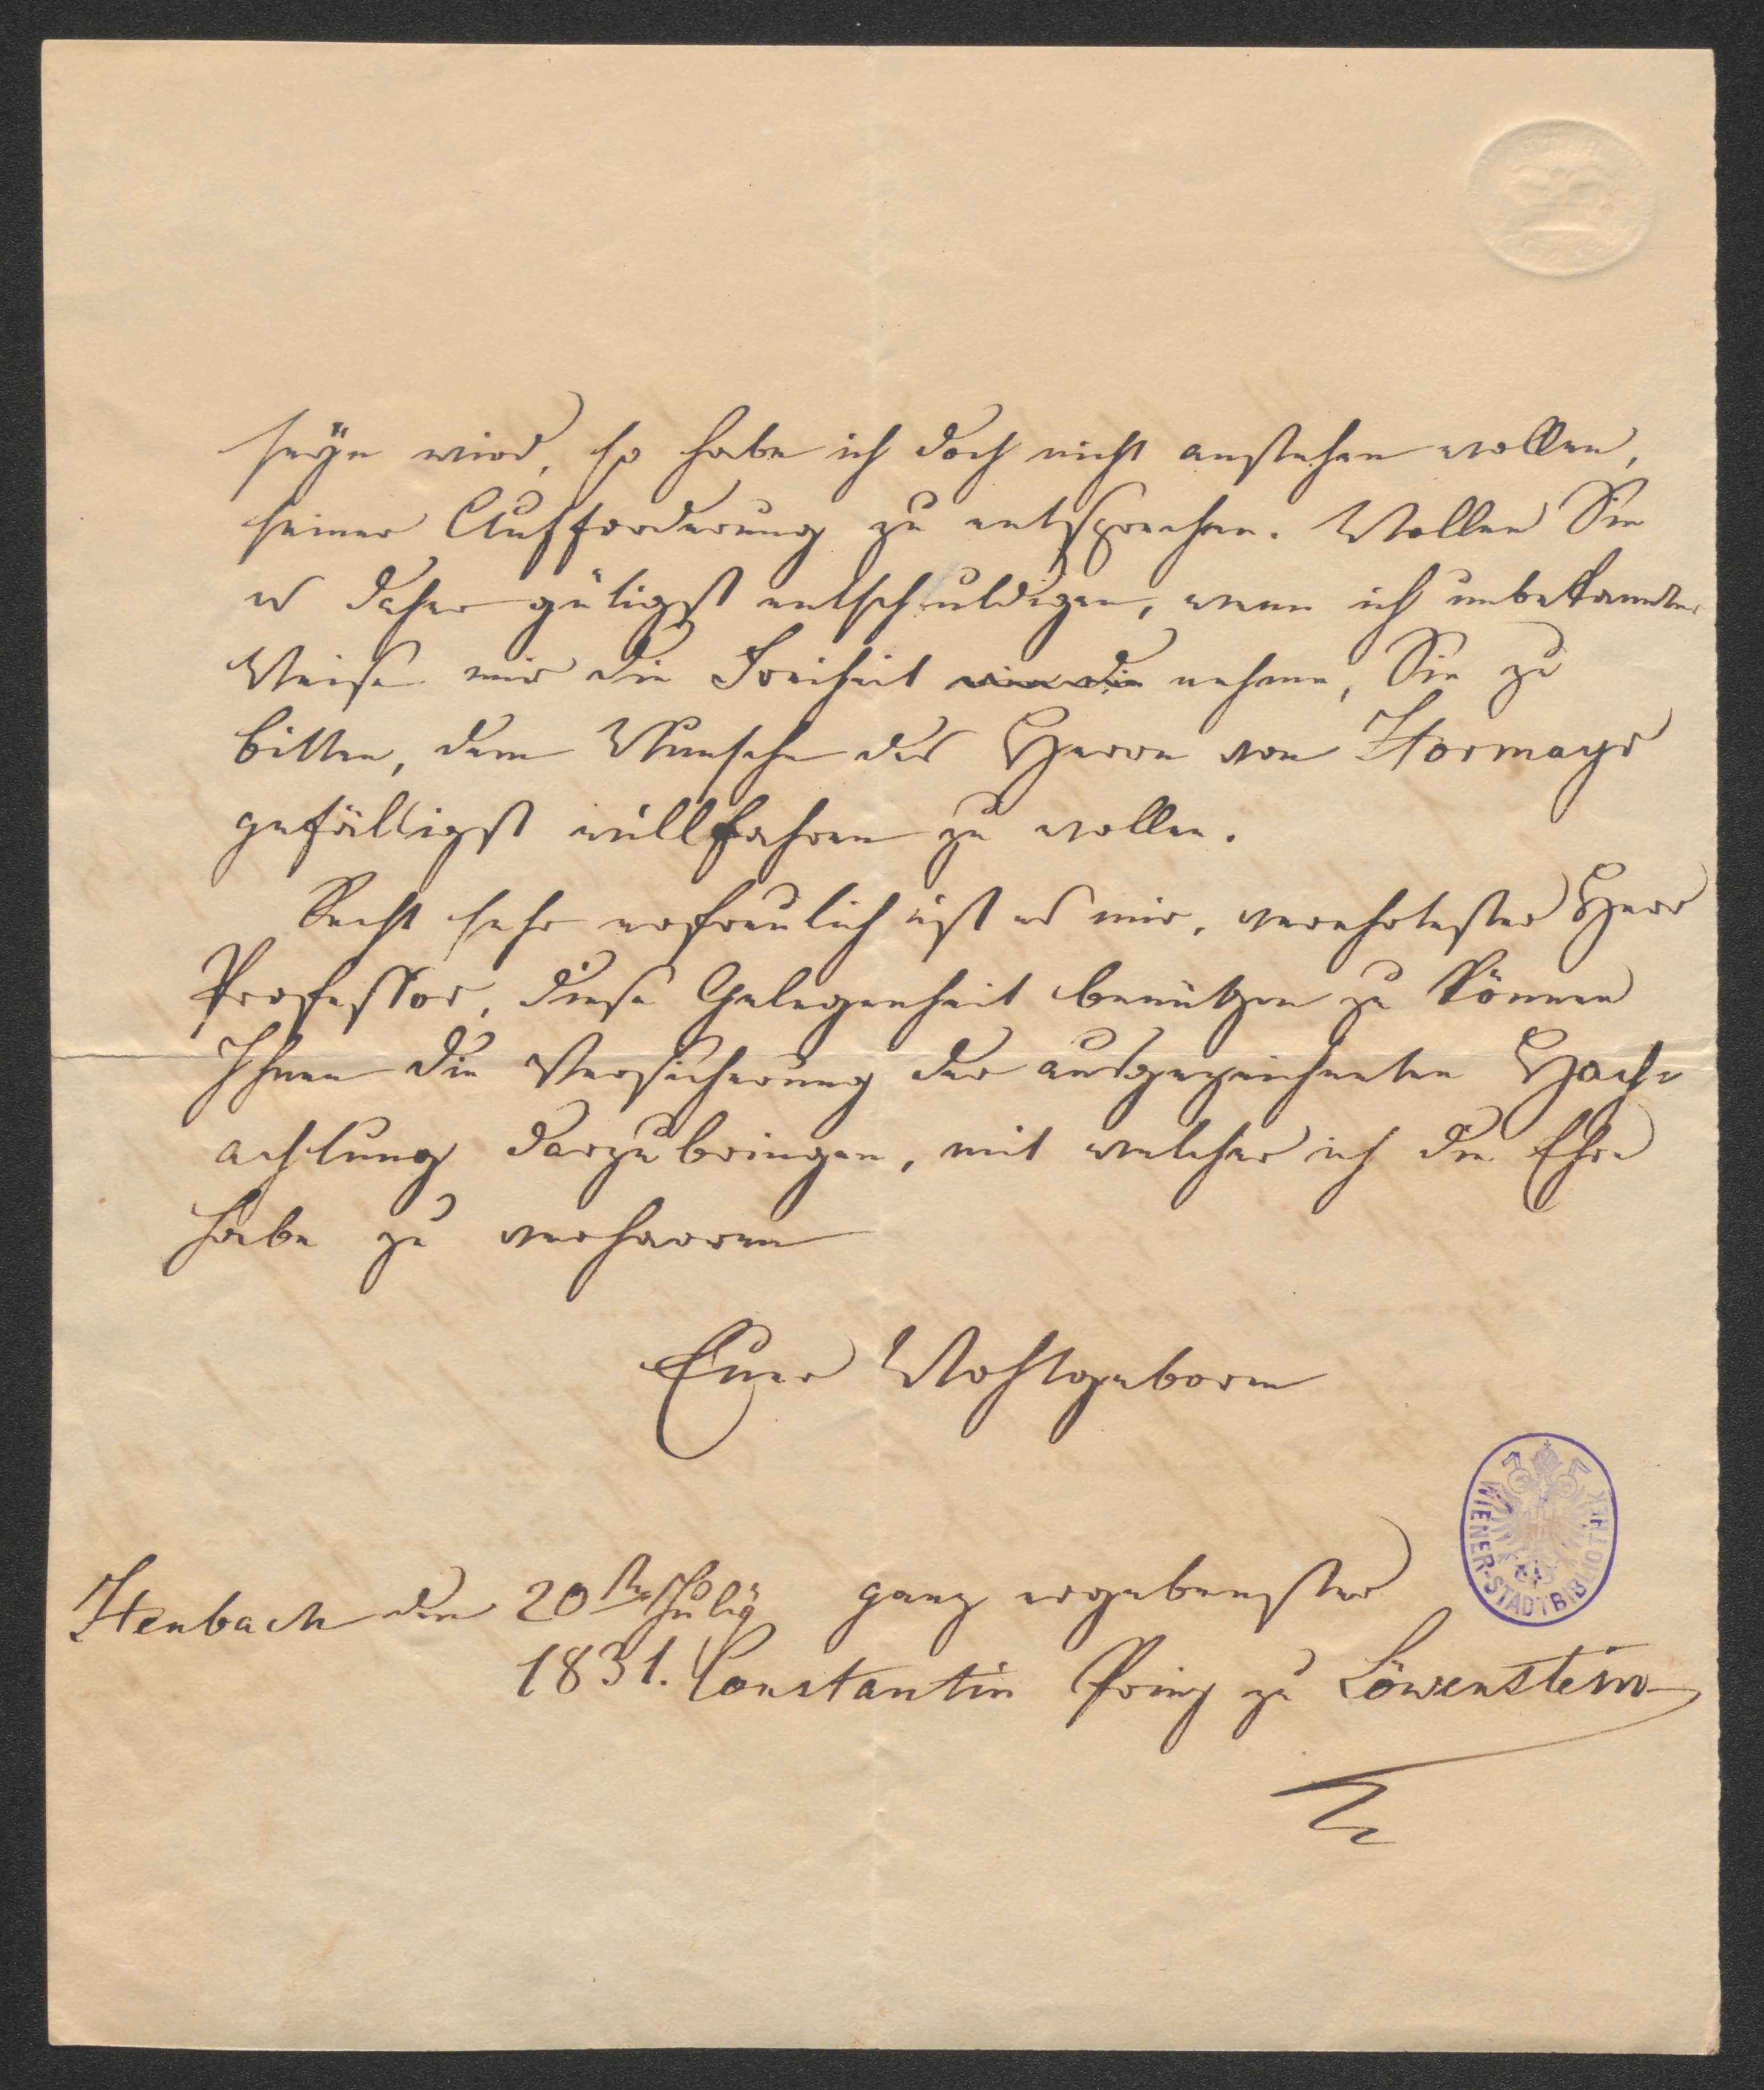 seÿn wird, so habe ich doch nicht anstehen wollen,
seiner Aufforderung zu entsprechen. Wollen Sie
es daher gütigst entschuldigen, wenn ich unbekannter
Weise mir die Freiheit nehme, Sie zu
bitten, dem Wunsche des Herrn von Hormayr
gefälligst willfahren zu wollen.
Recht sehr erfreulich ist es mir, verehrtester Herr
Professor, diese Gelegenheit benützen zu können
Ihnen die Versicherung der ausgezeichneten Hoch-
achtung darzubringen, mit welcher ich die Ehre
habe zu verharren
Euer Wohlgeboren
WIENER-STADTBIBLIOTHEK
Heubach den 20ten Julÿ ganz ergebenster
1831. Constantin Prinz zu Löwenstein